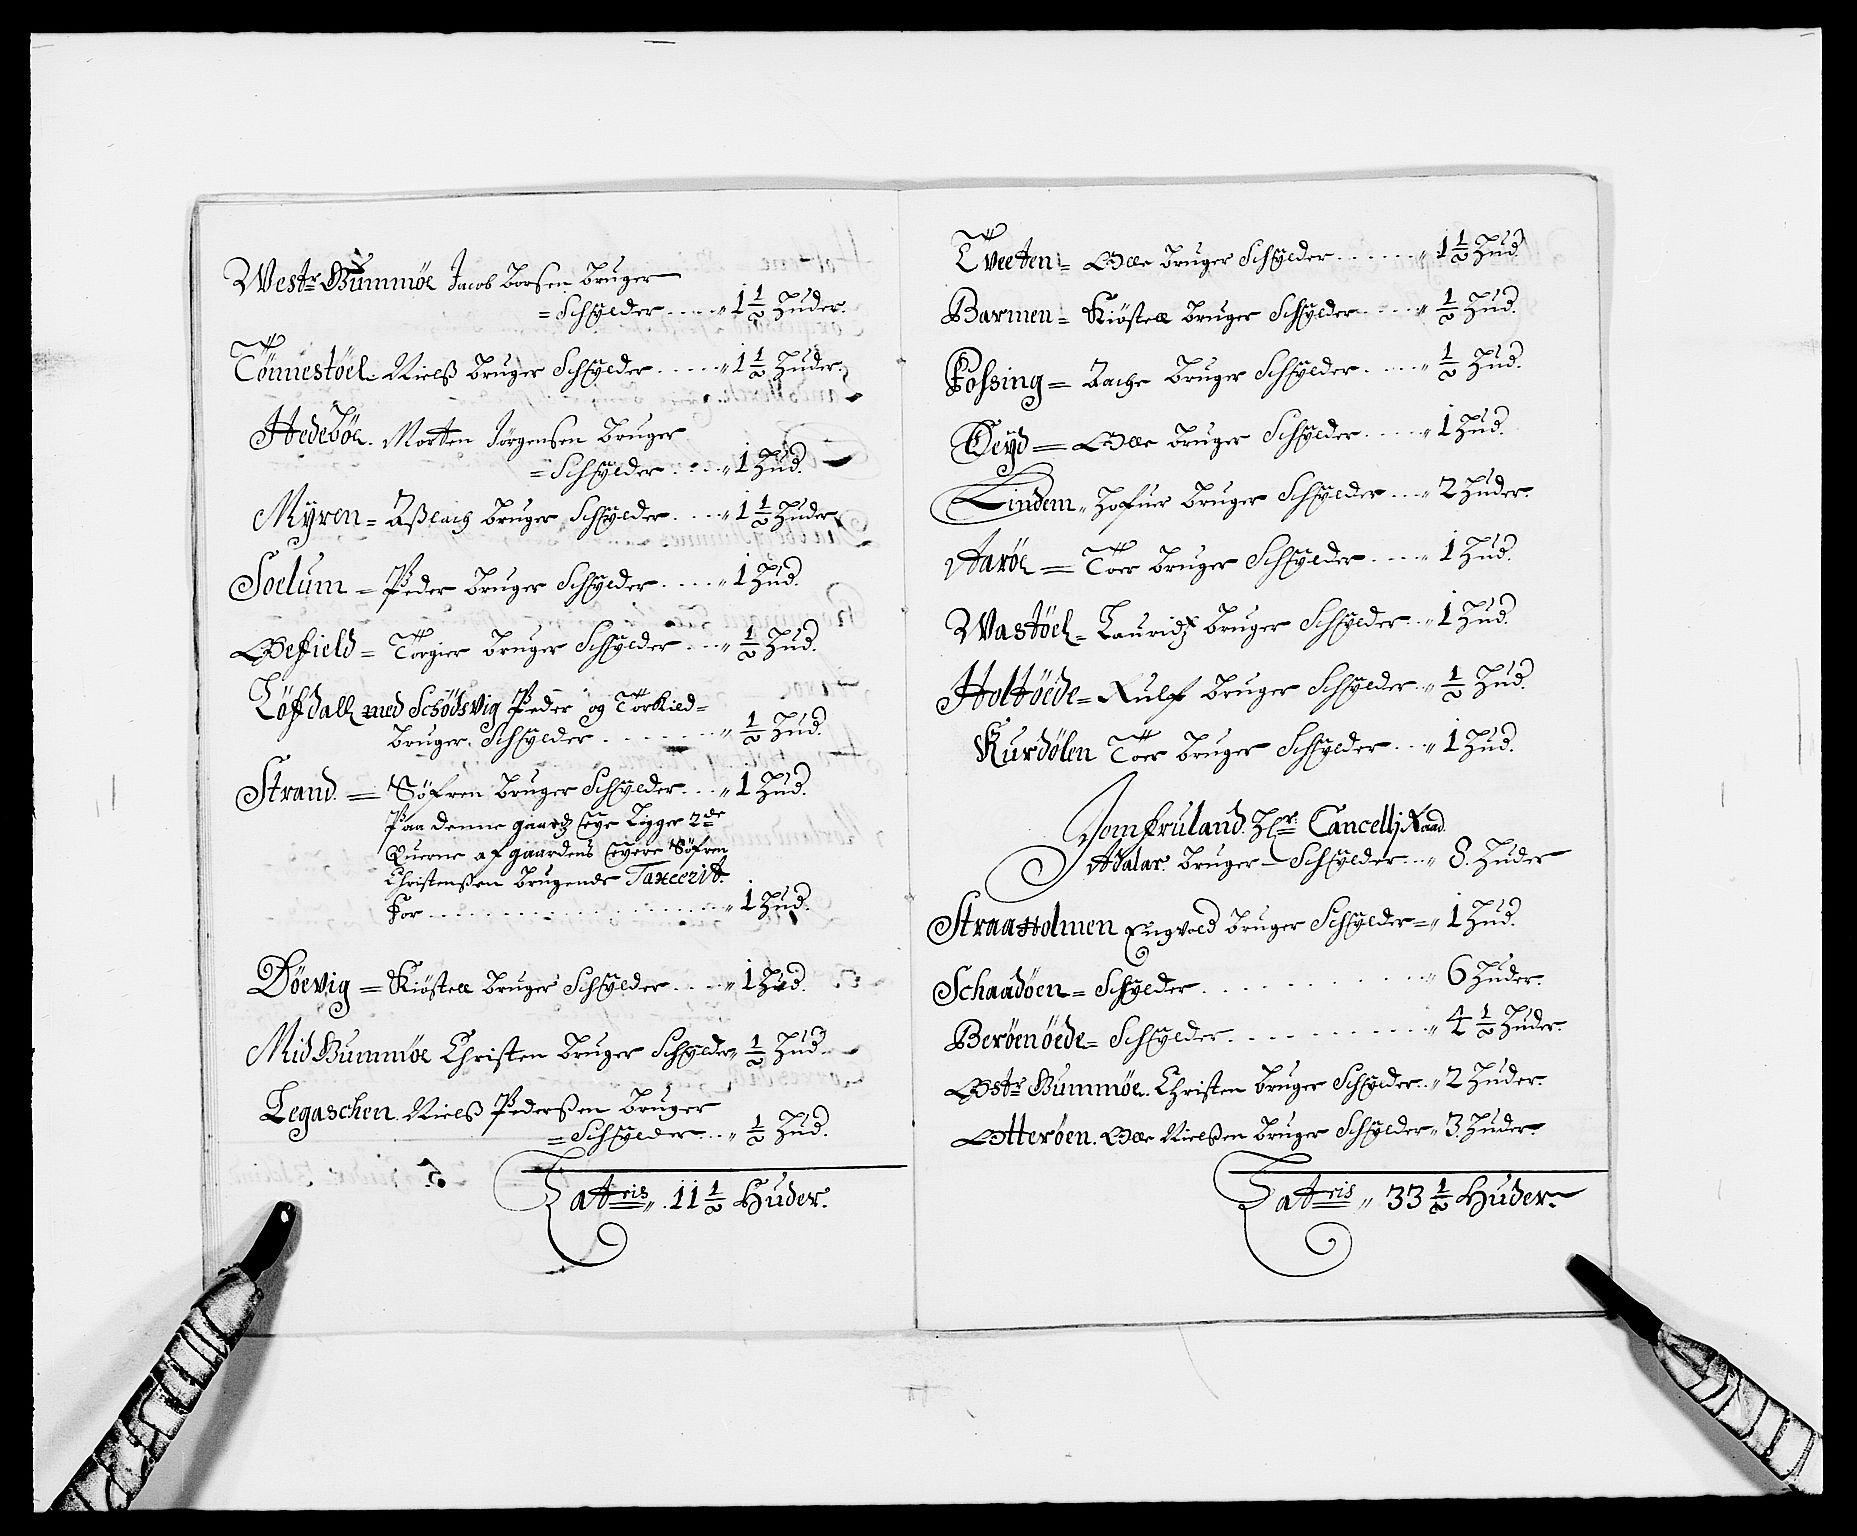 Westr Gummöe Jacob Borsen bruger
= Schylder ..... „ 1 1/2 Huder.
Tönnestöel. Nielß bruger Schylder ..... „ 1 1/2 Huder.
Hedeböe. Morten Jörgensen bruger
= Schylder .... „ 1 Hud.
Myren = Aßlach bruger Schylder .... „ 1 1/2 Huder
Soelum = Peder bruger Schylder .... „ 1 Hud.
Oefield = Torgier bruger Schylder .... „ 1/2 Hud.
Löfdall med Schödsvig Peder og Torkild =
bruger. Schylder ....... „ 1/2 Hud.
Strand. = Söfren bruger Schylder ... „ 1 Hud.
Paa denne gaardz eye ligger 2de
Querne af gaardens eyere Söfren
Christenßen brugende Taxcerit
for .................. „ 1 Hud.
Döevig = Kiöstell bruger Schylder .... „ 1 Hud.
Mid Gummöe Christen bruger Schylder „ 1/2 Hud.
Legaschen. Nielß Pederßen bruger
= Schylder ... „ 1/2 Hud.
Latris „ 11 1/2 Huder.
Tveeten = Olle bruger Schylder ...... „ 1 1/2 Hud.
Barmen = Kiöstell bruger Schylder .... „ 1/2 Hud.
Fossing = Aache bruger Schylder .... „ 1/2 Hud.
Deyd = Olle bruger Schylder .... „ 1 Hud.
Lindem „ Hofuer bruger Schylder ... „ 2 Huder.
Aaröe = Toer bruger Schylder .... „ 1 Hud.
Wastöel = Lauridz bruger Schylder .. „ 1 Hud.
Holtöede = Rulf bruger Schylder .. „ 1/2 Hud.
Kurdölen Toer bruger Schylder ... „ 1 Hud.
Jomfruland. Hr. Cancellj Raad
Adalar. bruger - Schylder ... „ 8. Huder
Straaholmen Engvold bruger Schylder = „ 1 Hud.
Schaadöen = Schylder .......... „ 6 Huder.
Beröenöede = Schylder .......... „ 4 1/2 Huder.
Ostr Gummöe. Christen bruger Schylder .. „ 2 Huder.
Otteröen. Olle Nielßen bruger Schylder „ 3. Huder.
Latris „ 33 1/2 Huder